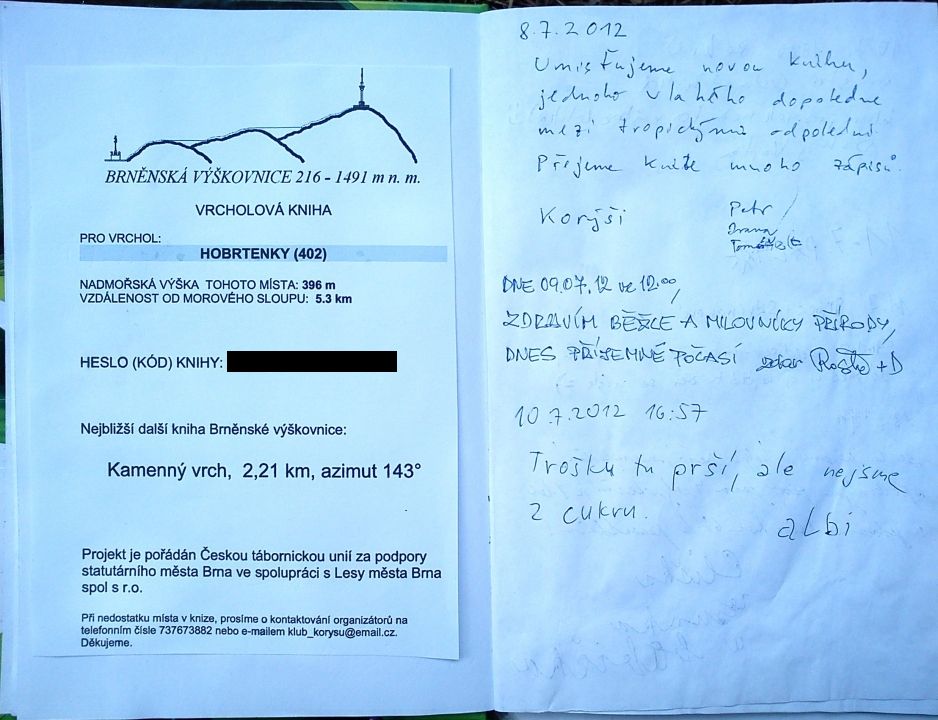 BRNĚNSKÁ VÝŠKOVNICE 216 - 1491 m n. m.
VRCHOLOVÁ KNIHA
PRO VRCHOL:
HOBRTENKY (402)
NADMOŘSKÁ VÝŠKA TOHOTO MÍSTA: 396 m
VZDÁLENOST OD MOROVÉHO SLOUPU: 5.3 km
HESLO (KÓD) KNIHY:
Nejbližší další kniha Brněnské výškovnice:
Kamenný vrch, 2,21 km, azimut 143°
Projekt je pořádán Českou tábornickou unií za podpory
statutárního města Brna ve spolupráci s Lesy města Brna
spol s r.o.
Při nedostatku místa v knize, prosíme o kontaktování organizátorů na
telefonním čísle 737673882 nebo e-mailem klub_korysu@email.cz.
Děkujeme.
8.7.2012
Umisťujeme novou knihu,
jednoho vlahého dopoledne
mezi tropickými odpoledni.
Přejeme knize mnoho zápisů.
Korýši
Petr
DNE 09.07.12 ve 12:00,
ZDRAVÍM BĚŽCE A MILOVNÍKY PŘÍRODY,
DNES PŘÍJEMNÉ POČASÍ zdar + D
10.7.2012 16:57
Trošku tu prší, ale nejsme
z cukru.
albi